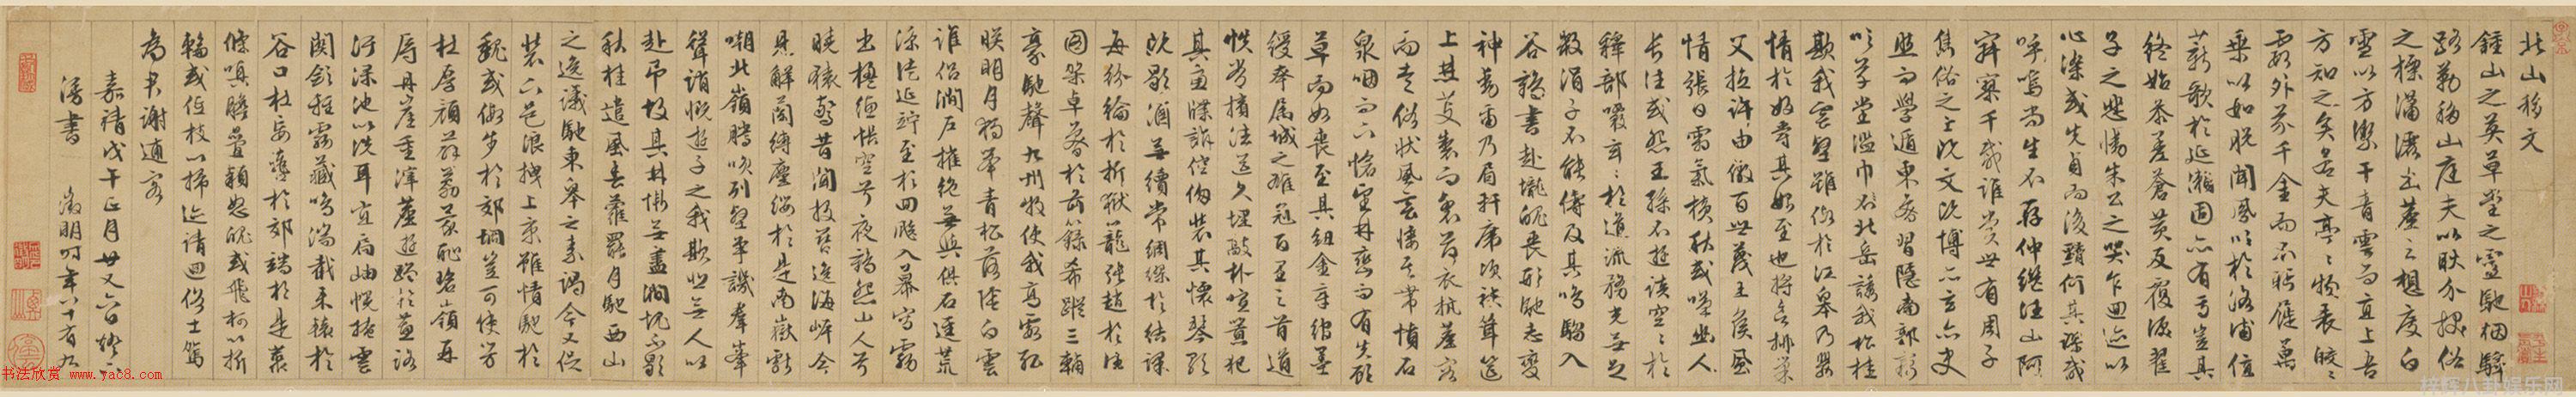 北山移文
鍾山之英草堂之靈馳烟驛
路勒移山庭夫以耿介拔俗
之標瀟灑出塵之想度白
雪以方潔干青雲而直上吾
方知之矣若夫亭亭物表皎皎
霞外芥千金而不眄屣萬
乘以如脫聞鳳吹於洛浦值
薪歌於延瀨固亦有焉豈其
終始參差蒼黃反覆淚翟
子之悲慟朱公之哭乍迴迹以
心染或先貞而後黷何其謬哉
嗚呼尚生不存仲氏往山阿
寂寥千載誰賞世有周子
雋俗之士既文既博亦玄亦史
然而學遁東魯習隱南郭竊
吹草堂濫巾北岳誘我松桂
欺我雲壑雖假於江皋乃纓
情於好爵其始至也將欲排巢
父拉許由傲百世蔑王侯風
情張日霜氣橫秋或嘆幽人
長往或怨王孫不遊談空空於
釋部覈玄玄於道流務光無足
數涓子不能儔及其鳴騶入
谷鶴書赴隴魄喪形馳志變
神動爾乃眉軒席次袂聳筵
上焚芰製而裂荷衣抗塵容
而走俗狀風雲悽其帶憤石
泉咽而下愴望林巒而有失顧
草而如喪至其紐金章綰墨
綬奪屬城之雄冠百里之首道
帙常擯法筵久埋敲朴喧囂犯
其慮牒訴倥傯裝其懷琴歌
既斷酒無續常綢繆於結課
每紛綸於折獄籠張趙於往
圖架卓魯於前籙希蹤三輔
豪馳聲九州牧使我高霞孤
映明月獨舉青松落陰白雲
誰侶澗石摧絕無與俱石逕荒
涼徒延竚至於迴飈入幕寫霧
出楹蕙帳空兮夜鶴怨山人兮
曉猿驚昔聞投簪逸海岸今
見解蘭縛塵纓於是南嶽獻
嘲北嶺騰笑列壑爭譏攢峯
竦誚慨遊子之我欺悲無人以
赴弔故其林慚無盡澗愧不歇
秋桂遣風春蘿罷月馳西山
之逸議馳東皋之素謁今又促
裝下邑浪拽上京雖情馳於
魏闕或假步於郊扃豈可使芳
杜厚顏薜荔蒙恥碧嶺再
辱丹崖重滓塵遊躅於蕙路
汙淥池以洗耳宜扃岫幌掩雲
關斂輕霧藏鳴湍截來轅於
谷口杜妄轡於郊端於是叢
條嗔膽疊穎怒魄或飛柯以折
輪或低枝以掃迹請迴俗士駕
為君謝逋客
嘉靖戊午正月廿又六日燈下
漫書　徵明時年八十有九
书法欣赏 www.yac8.com
梓辉八卦娱乐网